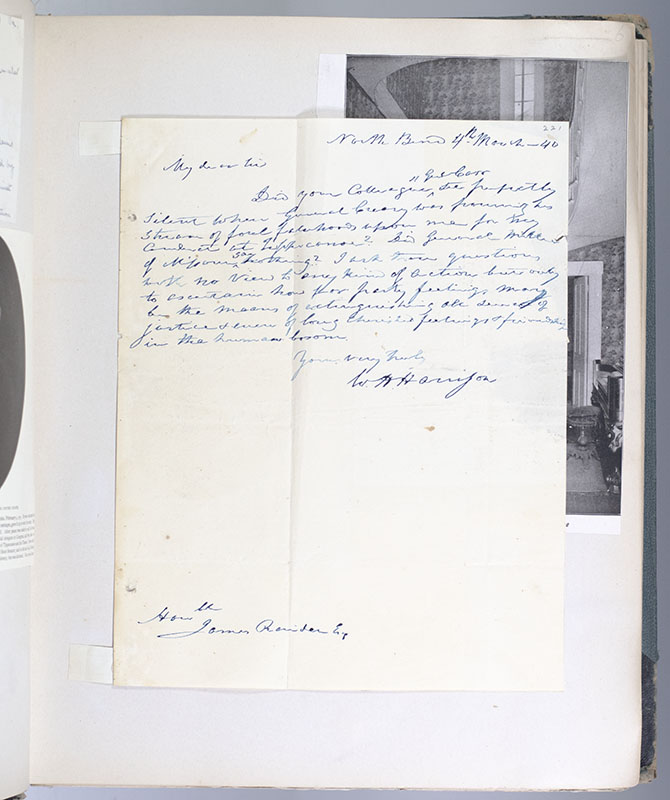 221
North Bend 4th March - 40
My dear Sir
Did your Colleague, Genl Carr sit perfectly
Silent when General Crary was pouring his
Stream of foul falsehoods upon me for the
Conduct at Tippecanoe? Did General Miller
of Missouri say nothing? I ask these questions
with no view to any kind of action but only
to ascertain how far party feelings may
be the means of extinguishing the sense of
justice & even of long cherished feelings of friendship
in the human bosom
Yours very truly
W H Harrison
Honble
James Rariden Esq